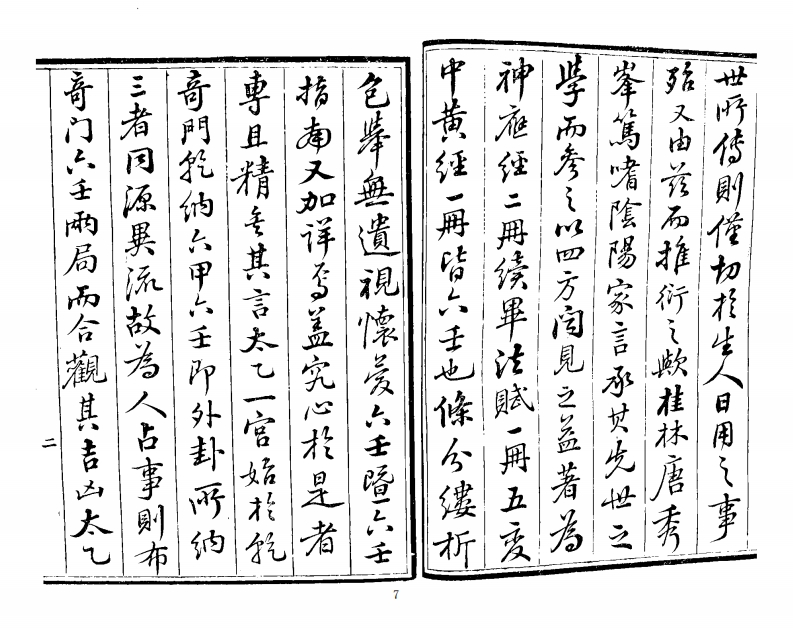 世所傳則僅切於生人日用之事
殆又由茲而推衍之歟桂林唐秀
峯篤嗜陰陽家言承其先世之
學而參之以四方聞見之益著為
神應經二冊續畢法賦一冊五變
中黃經一冊皆六壬也條分縷析
包舉無遺視懷荽六壬暨六壬
指南又加詳焉蓋究心於是者
專且精矣其言太乙一宮始於乾
奇門乾納六甲六壬即外卦所納
三者同源異流故為人占事則布
奇门六壬兩局而合觀其吉凶太乙
二
7